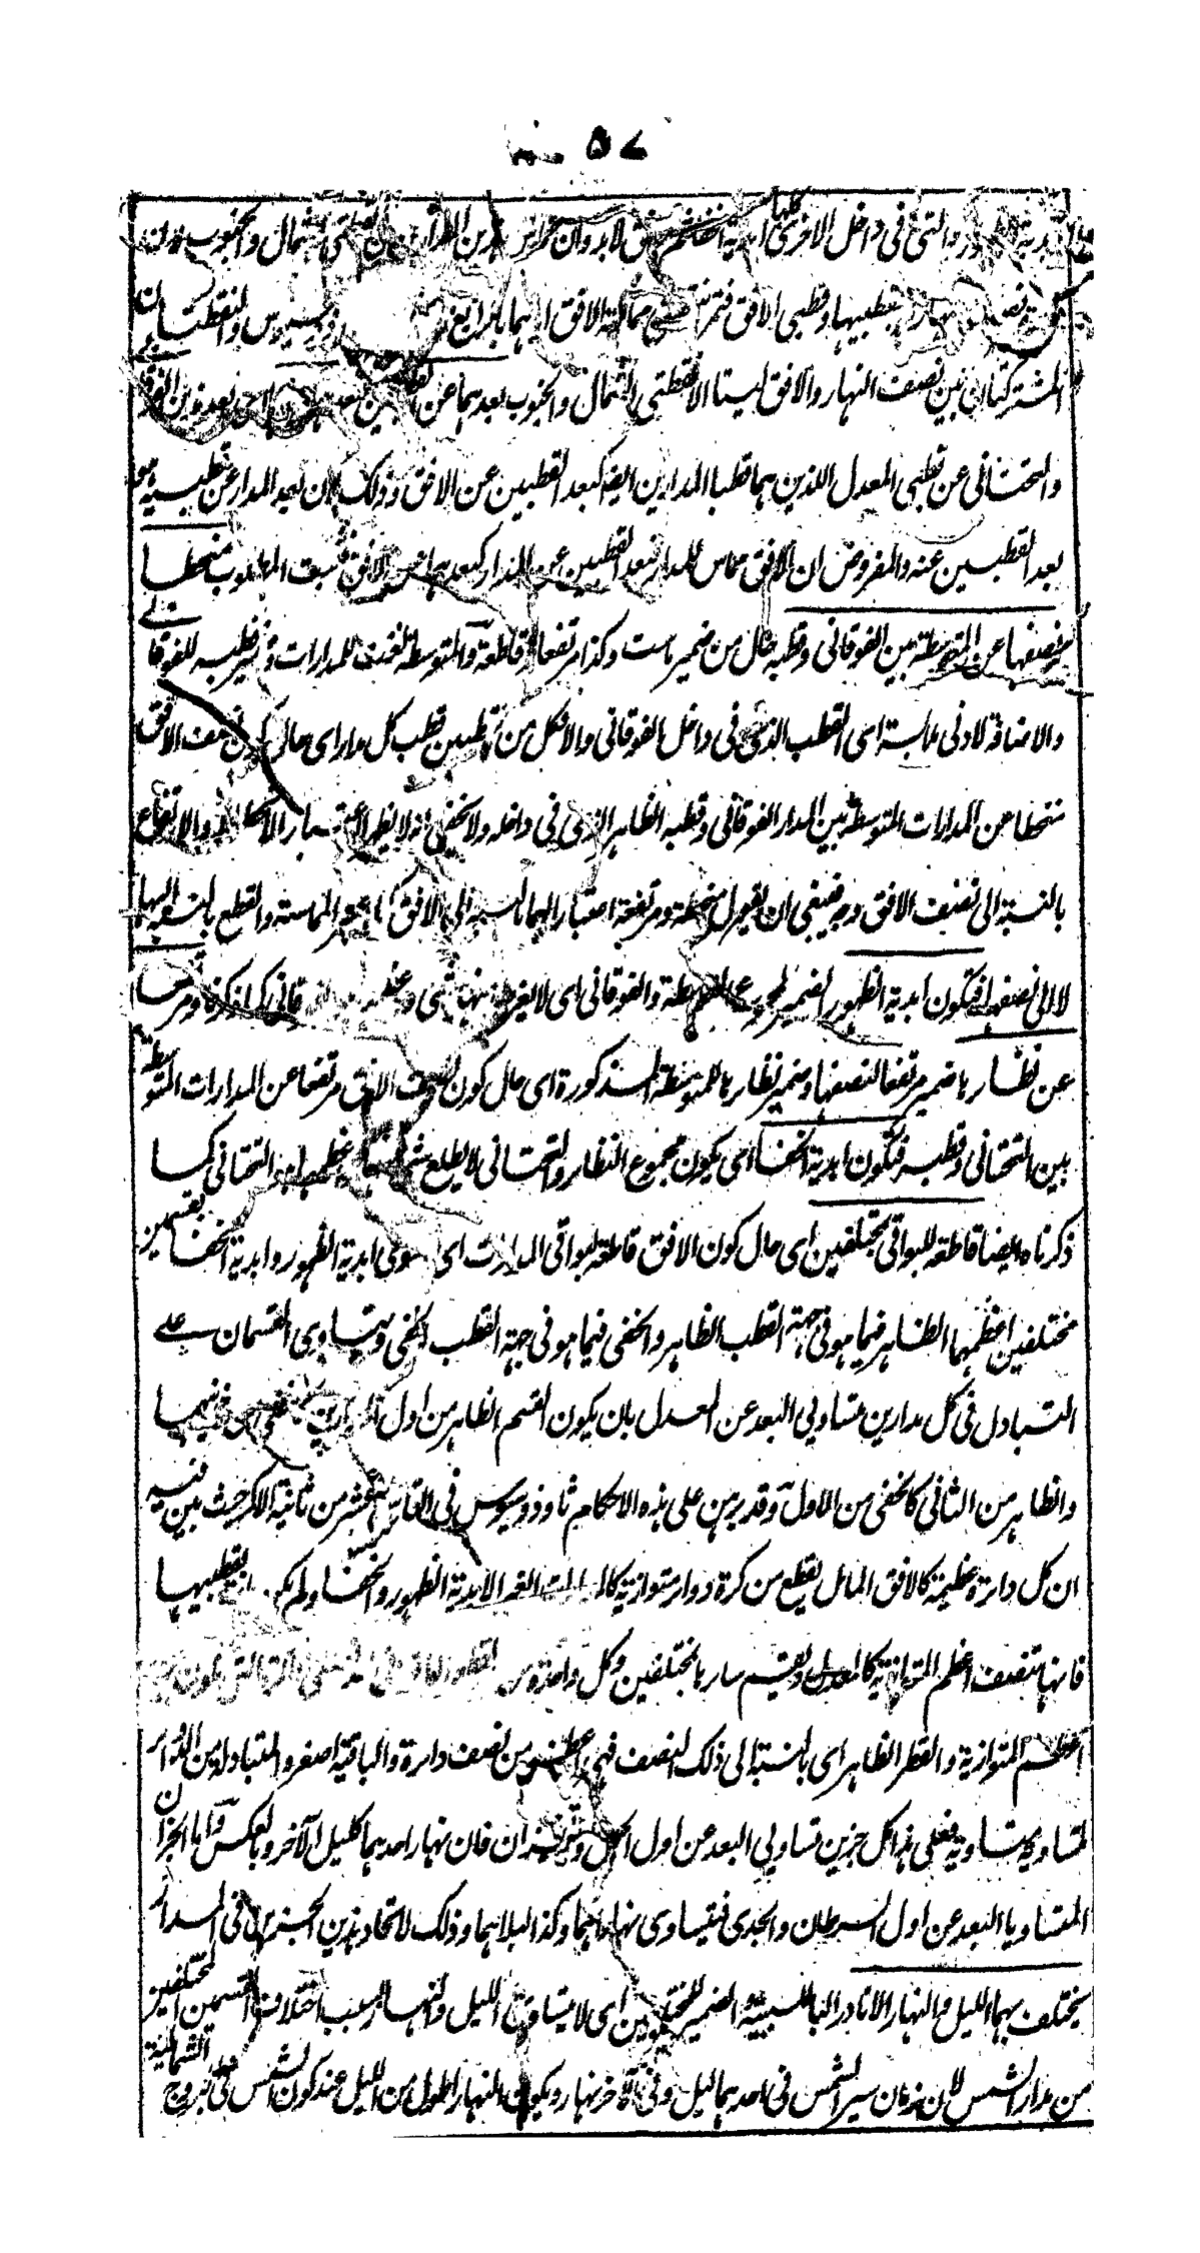 ٥٧
والتى فى داخل الاخرى كلها ابدية الخفا ثم الافق لابد وان يماس هذين المدارين على نقطتى الشمال والجنوب لان
بقطبيها وقطبى الافق فتمر بنقطتى مماسة الافق اياهما والنقطتان
المشتركتان بين نصف النهار والافق ليستا الا نقطتى الشمال والجنوب بعدهما عن
والتحتانى عن قطبى المعدل اللذين هما قطبا المدارين ايضا كبعد القطبين عن الافق وذلك لان بعد المدار عن قطبيه هو
بعد القطبين عنه والمفروض ان الافق مماس للمدار فبعد القطبين عن المدار كبعدهما عن الافق فثبت المطلوب منحطا
بنصفها عن المتوسطة بين الفوقانى وقطبه حال من ضمير ماست وكذا مرتفعا وقاطعة والمتوسطة نعت للمدارات وضمير قطبه للفوقانى
والاضافة لادنى ملابسة اى القطب الذى فى داخل الفوقانى والا فكل من القطبين قطب كل مدار اى حال كون نصف الافق
منحطا عن المدارات المتوسطة بين المدار الفوقانى وقطبه الظاهر الذى فى داخله ولا يخفى انه لا يظهر اعتبار الانحطاط والارتفاع
بالنسبة الى نصف الافق وجه فينبغى ان يقول منحطة ومرتفعة اعتبارا لهما بالنسبة الى الافق كما اعتبر المماسة والقطع بالنسبة اليها
لا الى نصفها فتكون ابدية الظهور الضمير لمجموع المتوسطة والفوقانى اى لا يغرب منها شئ وعظمه الفوقانى كما ذكرنا ومرتفعا
عن نظائرها ضمير مرتفعا لنصفها وضمير نظائرها للمتوسطة المذكورة اى حال كون نصف الافق مرتفعا عن المدارات المتوسطة
بين التحتانى وقطبه فتكون ابدية الخفا اى يكون مجموع النظائر والتحتانى لا يطلع شئ منها وعظمها التحتانى كما
ذكرناه ايضا قاطعة للبواقى بقسمين مختلفين اى حال كون الافق قاطعة لبواقى المدارات اى سوى ابدية الظهور وابدية الخفا
مختلفين اعظمهما الظاهر فيما هو فى جهة القطب الظاهر والخفى فيما هو فى جهة القطب الخفى ويتساوى القسمان على
التبادل فى كل مدارين متساويى البعد عن المعدل بان يكون القسم الظاهر من اول
والظاهر من الثانى كالخفى من الاول وقد برهن على هذه الاحكام ثاوذوسيوس فى التاسع عشر من ثانية الاكر حيث بين فيه
ان كل دائرة عظيمة كالافق المائل يقطع من كرة دوائر متوازية كالمدارات الغير الابدية الظهور والخفا ولم يمر بقطبيها
فانها تنصف اعظم المتوازية كالمعدل وتقسم سايرها بمختلفين وكل واحدة من
اعظم المتوازية والقطر الظاهر اى بالنسبة الى ذلك النصف فهى اعظم من نصف دائرة والباقية اصغر والمتبادلة من الدوائر
المتساوية متساوية فعلى هذا كل جزئين متساويى البعد عن اول الحمل والميزان فان نهار احدهما كليل الآخر وبالعكس واما الجزآن
المتساويا البعد عن اول السرطان والجدى فيتساوى نهاراهما وكذا ليلاهما وذلك لاتحاد هذين الجزئين فى المدار
يختلف بهما الليل والنهار الا نادرا الباء للسببية والضمير للمختلفين اى لا يتساوى الليل والنهار بسبب اختلاف القسمين المختلفين
من مدار الشمس لان زمان سير الشمس فى احدهما ليل وفى الآخر نهار ويكون النهار اطول من الليل عند كون الشمس فى البروج الشمالية